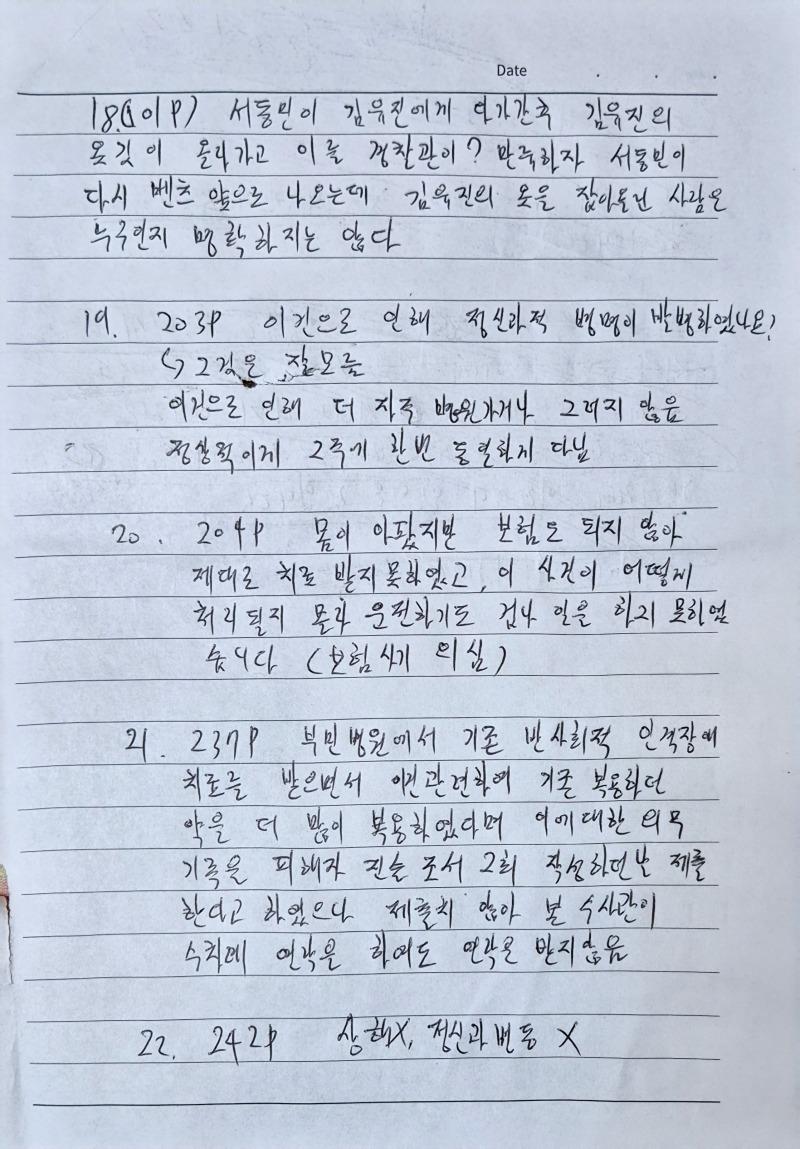 Date . . .
18.(101P) 서동민이 김유진에게 다가간 후 김유진의
옷깃이 올라가고 이를 경찰관이? 만류하자 서동민이
다시 벤츠 앞으로 나오는데 김유진의 옷을 잡아올린 사람은
누구인지 명확하지는 않다
19. 203P 이건으로 인해 정신과적 병명이 발병하였나요?
↳ 그것은 잘모름
이건으로 인해 더 자주 병원가거나 그러지 않음
정상적이게 2주에 한번 동일하게 다님
20. 204P 몸이 아팠지만 보험도 되지 않아
제대로 치료 받지못하였고, 이 사건이 어떻게
처리될지 몰라 운전하기도 겁나 일을 하지 못하였
습니다 (보험사기 의심)
21. 237P 부민병원에서 기존 반사회적 인격장애
치료를 받으면서 이건관련하여 기존 복용하던
약을 더 많이 복용하였다며 이에대한 의무
기록을 피해자 진술 조서 2회 작성하던날 제출
한다고 하였으나 제출치 않아 본 수사관이
수차례 연락을 하여도 연락을 받지않음
22. 242P 상해X, 정신과변동 X